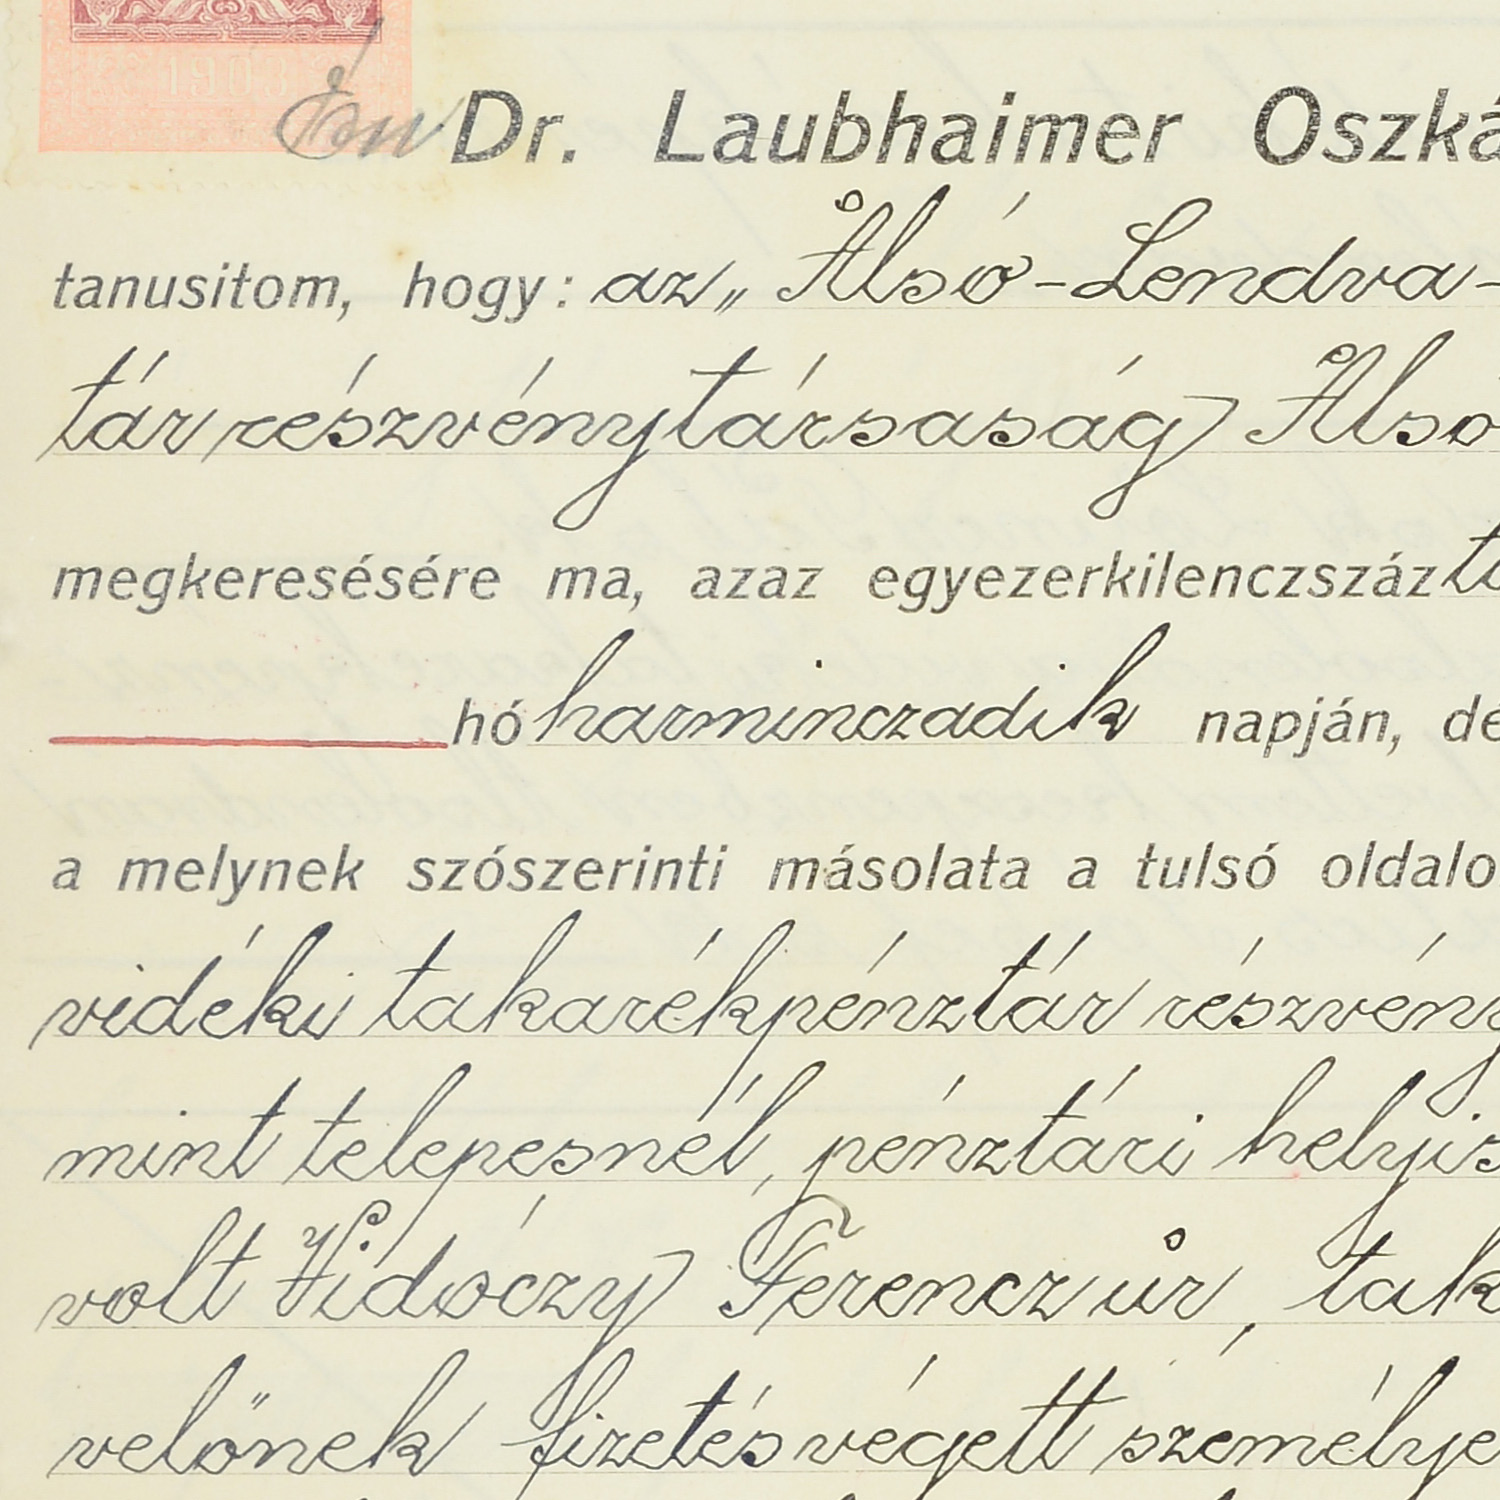 1903
Én Dr. Laubhaimer Oszká
tanusitom, hogy: az „Alsó-Lendva-
tár részvénytársaság Alsó
megkeresésére ma, azaz egyezerkilenczszáz
hó harminczadik napján, de
a melynek szószerinti másolata a tulsó oldalo
vidéki takarékpénztár részvény
mint telepesnél, pénztári helyis
volt Vidóczy Ferencz úr, tak
velőnek fizetés végett személye